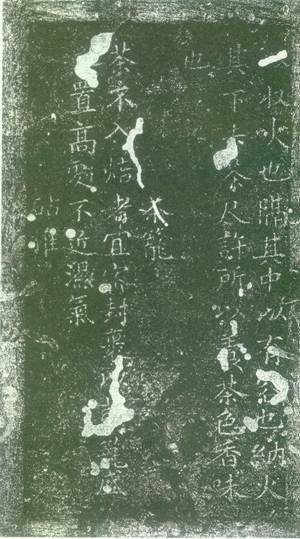 收火也隔其中以有也納火
其下去茶尺許所以養茶色香味
也
茶籠
茶不入焙者宜密封裹籠盛
置高處不近濕氣
砧椎